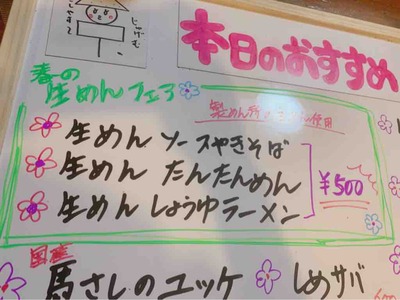 じゃげむ
本日のおすすめ
春の
生めんフェア
使用
生めん ソースやきそば
生めん たんたんめん
生めん しょうゆラーメン
¥500
国産
馬さしのユッケ
しめサバ